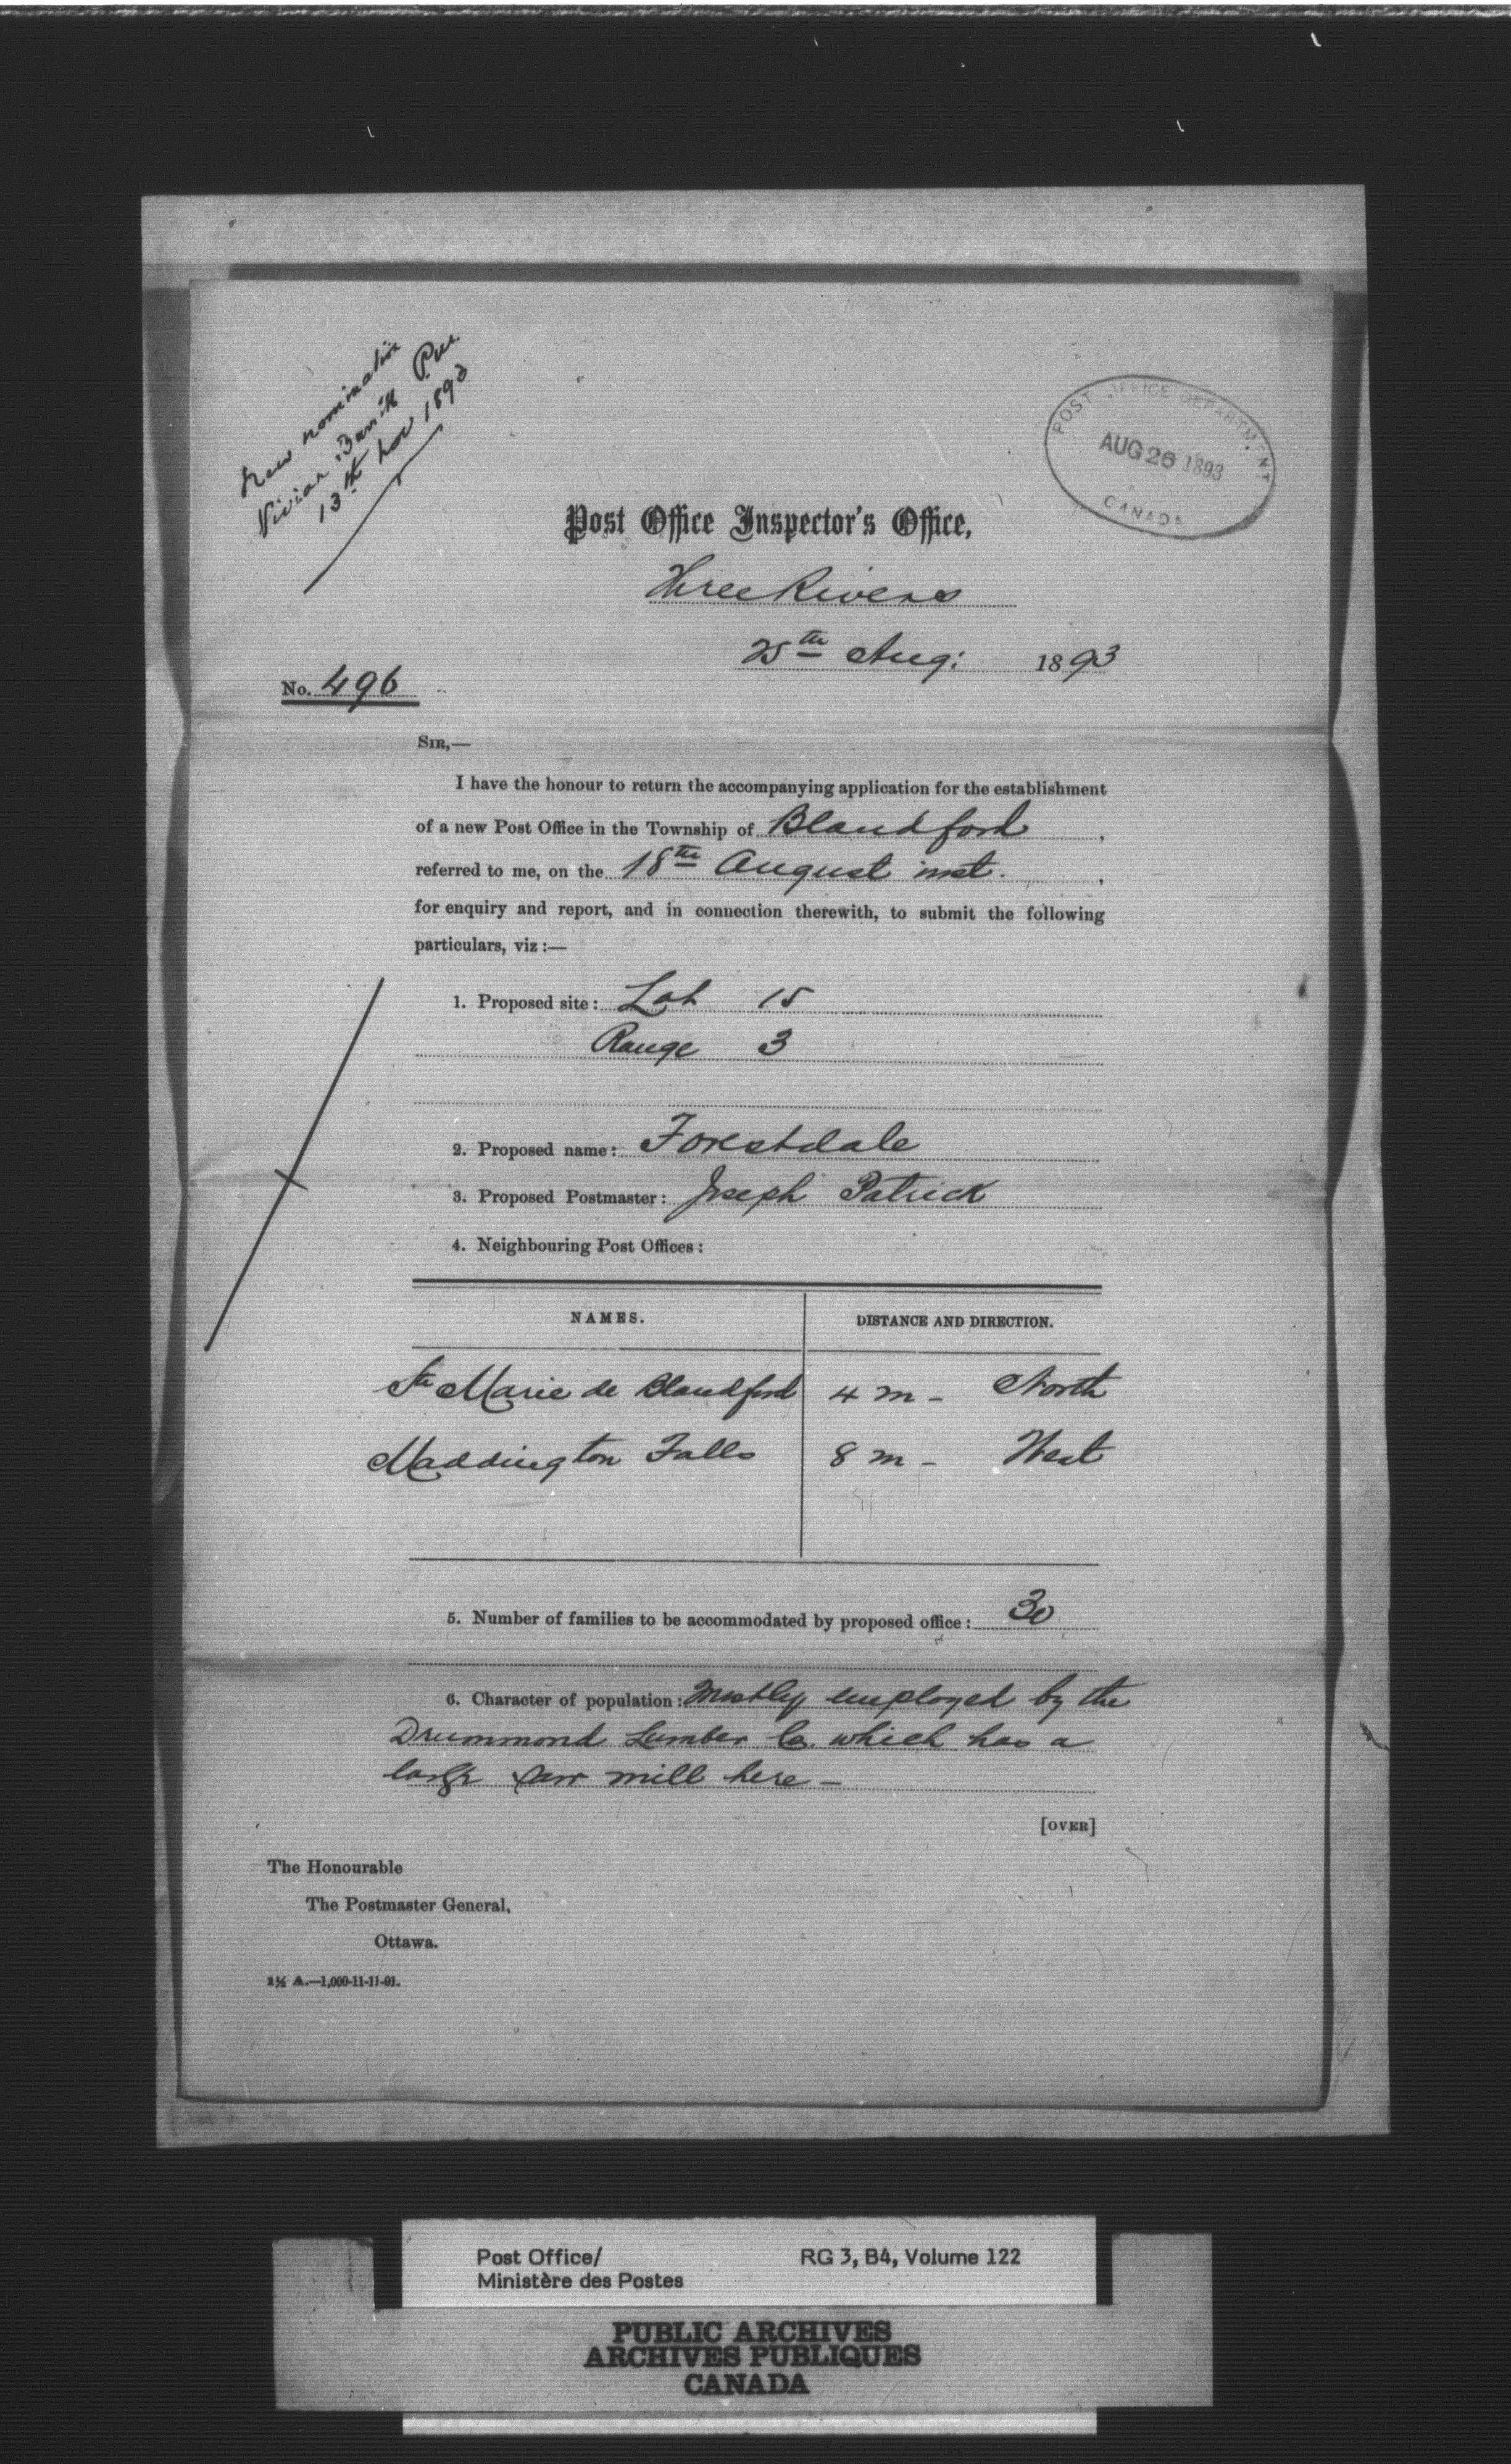 New nomination
Vivian P.M.
13th Nov 1893
POST OFFICE DEPARTMENT
AUG 26 1893
CANADA
Post Office Inspector's Office,
Three Rivers
25th Aug: 1893
No. 496
SIR,—
I have the honour to return the accompanying application for the establishment
of a new Post Office in the Township of Blandford,
referred to me, on the 18th August inst.,
for enquiry and report, and in connection therewith, to submit the following
particulars, viz:—
1. Proposed site: Lot 15
Range 3
2. Proposed name: Forestdale
3. Proposed Postmaster: Joseph Patrick
4. Neighbouring Post Offices:
NAMES. DISTANCE AND DIRECTION.
Ste Marie de Blandford 4 m - North
Maddington Falls 8 m - West
5. Number of families to be accommodated by proposed office: 30
6. Character of population: Mostly employed by the
Drummond Lumber Co. which has a
large saw mill here -
[OVER]
The Honourable
The Postmaster General,
Ottawa.
1½ A.—1,000-11-11-91.
Post Office/ RG 3, B4, Volume 122
Ministère des Postes
PUBLIC ARCHIVES
ARCHIVES PUBLIQUES
CANADA